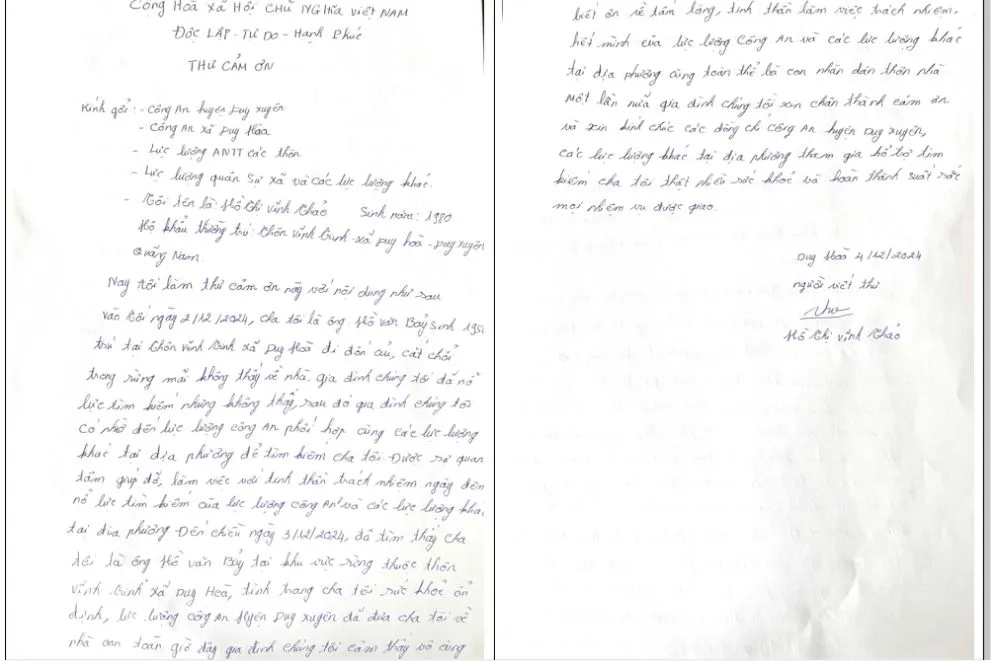 Cộng Hoà Xã Hội Chủ Nghĩa Việt NAM
Độc LẬP - Tự Do - Hạnh Phúc
THƯ CẢM ƠN
Kính gởi : - Công An huyện Duy Xuyên
- Công An xã Duy Hòa
- Lực lượng ANTT các thôn
- Lực lượng quân sự xã và các lực lượng khác.
- Tôi tên là: Hồ Thị Vĩnh Thảo Sinh năm: 1980
Hộ khẩu thường trú: Thôn Vĩnh Trinh - xã Duy Hoà - Duy Xuyên
Quảng Nam.
Nay tôi làm thư cảm ơn này với nội dung như sau
vào tối ngày 2/12/2024, cha tôi là ông Hồ Văn Bảy sinh 195
trú tại Thôn Vĩnh Trinh xã Duy Hoà đi đốn củi, cắt chổi
trong rừng mãi không thấy về nhà. Gia đình chúng tôi đã nổ
lực tìm kiếm nhưng không thấy, sau đó gia đình chúng tôi
có nhờ đến lực lượng công An phối hợp cùng các lực lượng
khác tại địa phương để tìm kiếm cha tôi. Được sự quan
tâm giúp đỡ, làm việc với tinh thần trách nhiệm ngày đêm
nổ lực tìm kiếm của lực lượng công An và các lực lượng khác
tại địa phương Đến chiều ngày 3/12/2024, đã tìm thấy cha
tôi là ông Hồ Văn Bảy tại khu vực rừng thuộc thôn
Vĩnh Trinh xã Duy Hoà, tình trạng cha tôi sức khỏe ổn
định, lực lượng công An Huyện Duy Xuyên đã đưa cha tôi về
nhà an toàn giờ đây gia đình chúng tôi cảm thấy vô cùng
biết ơn về tấm lòng, tinh thần làm việc trách nhiệm,
hết mình của lực lượng Công An và các lực lượng khác
tại địa phương cùng toàn thể bà con nhân dân thôn nhà
Một lần nữa gia đình chúng tôi xin chân thành cảm ơn
và xin kính chúc các đồng chí công An huyện Duy Xuyên,
các lực lượng khác tại địa phương tham gia hỗ trợ tìm
kiếm cha tôi thật nhiều sức khoẻ và hoàn thành suất sắc
mọi nhiệm vụ được giao.
Duy Hoà 4/12/2024
người viết thư
Hồ Thị Vĩnh Thảo